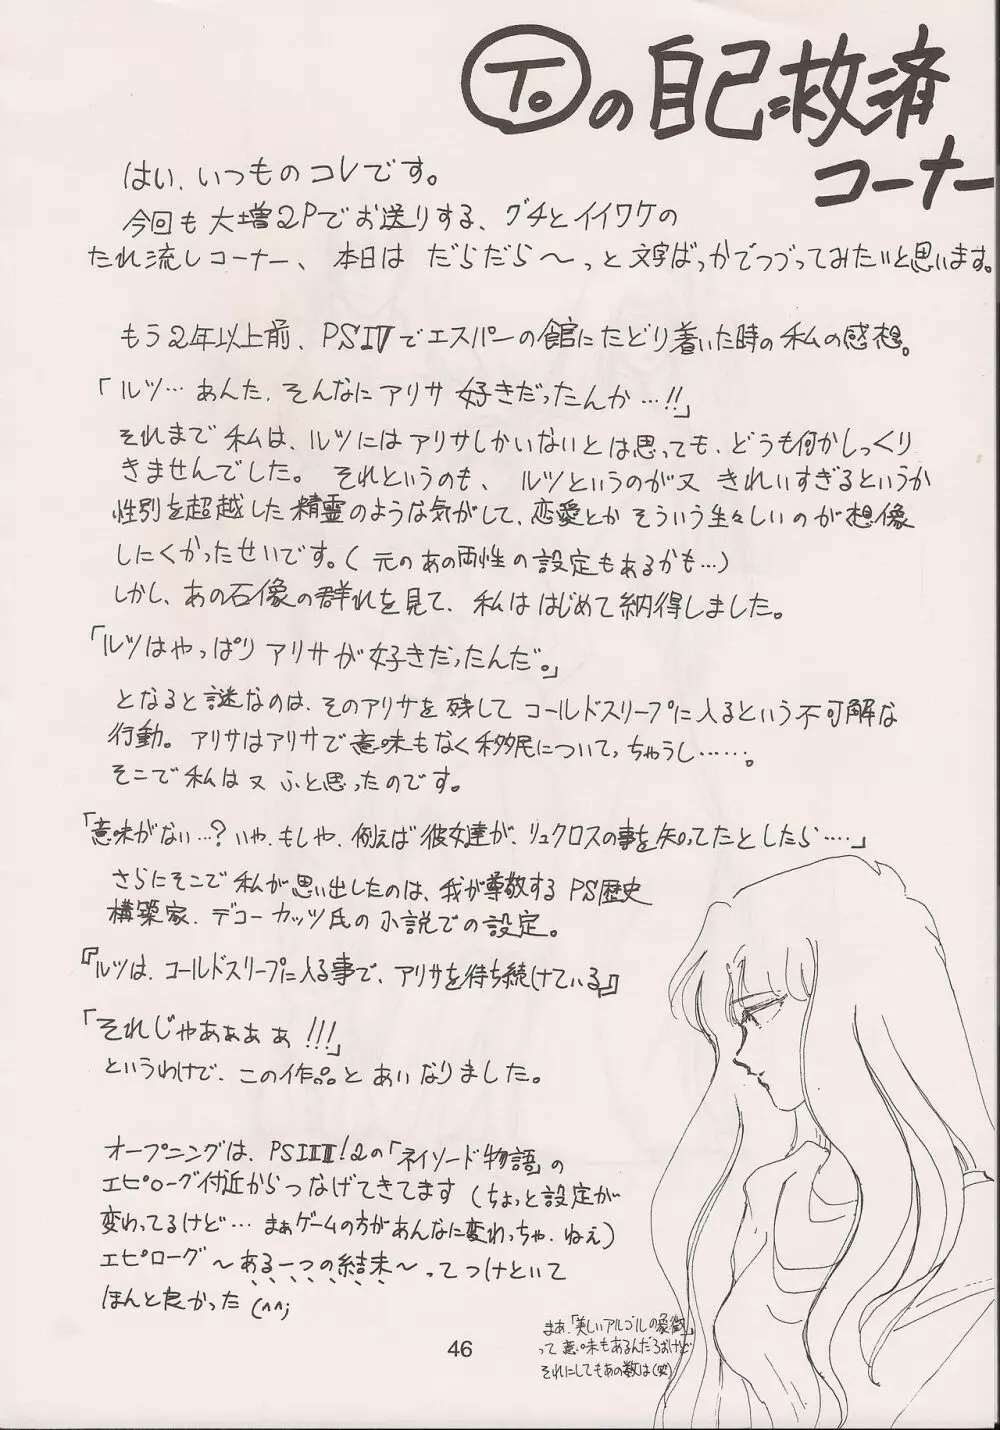 Toの自己救済
コーナー
はい、いつものコレです。
今回も大増2Pでお送りする、グチとイイワケの
たれ流しコーナー、本日はだらだら〜っと文字ばっかでつづってみたいと思います。
もう2年以上前、PSIVでエスパーの館にたどり着いた時の私の感想。
「ルツ…あんた、そんなにアリサ好きだったんか…!!」
それまで私は、ルツにはアリサしかいないとは思っても、どうも何かしっくり
きませんでした。それというのも、ルツというのが又きれいすぎるというか
性別を超越した精霊のような気がして、恋愛とかそういう生々しいのが想像
しにくかったせいです。(元のあの両性の設定もあるかも…)
しかし、あの石像の群れを見て、私ははじめて納得しました。
「ルツはやっぱりアリサが好きだったんだ。」
となると謎なのは、そのアリサを残してコールドスリープに入るという不可解な
行動。アリサはアリサで意味もなく移民についてっちゃうし……。
そこで私は又ふと思ったのです。
「意味がない…?いや、もしや、例えば彼女達が、リュクロスの事を知ってたとしたら……」
さらにそこで私が思い出したのは、我が尊敬するPS歴史
構築家、デコーカッツ氏の小説での設定。
『ルツは、コールドスリープに入る事で、アリサを待ち続けている』
「それじゃあぁぁぁ!!!」
というわけで、この作品とあいなりました。
オープニングは、PSIIII!2の「ネイソード物語」の
エピローグ付近からつなげてきてます(ちょっと設定が
変わってるけど…まぁゲームの方があんなに変わっちゃ、ねぇ)
エピローグ〜ある一つの結末〜ってつけといて
ほんと良かった(^^;
まあ、「美しいアルゴルの象徴」
って意味もあるんだろおけど
それにしてもあの数は(笑)
46